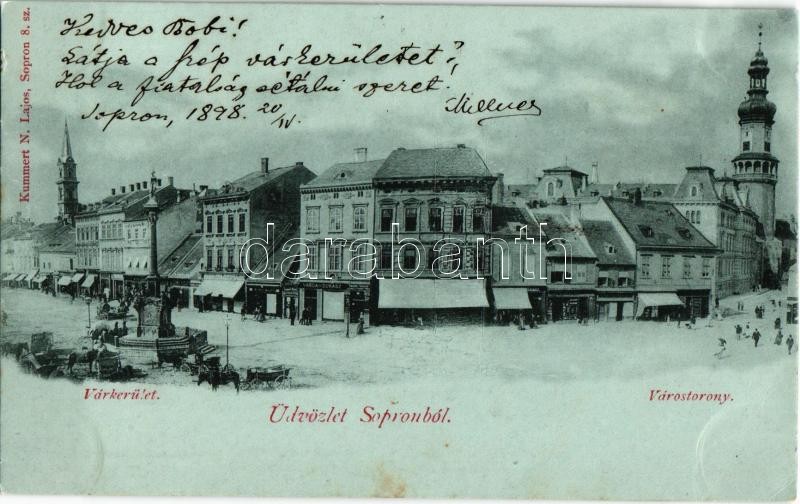 Kedves Bobi!
Látja a szép várkerületet?
Hol a fiatalság sétálni szeret!
Sopron, 1898. 20/IV.
Kummert N. Lajos, Sopron 8. sz.
darabanth
Várkerület.
Városterony.
Üdvözlet Sopronból.